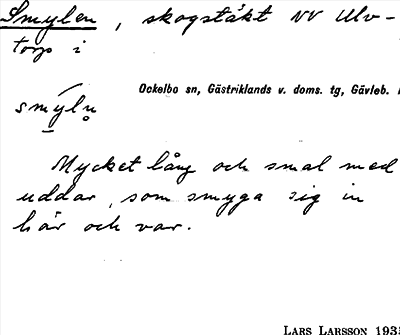 Smylen, skogstäkt NV Ulv-
torp i
Ockelbo sn, Gästriklands v. doms. tg, Gävleb.
smýlṇ
Mycket lång och smal med
uddar, som smyga sig in
här och var.
LARS LARSSON 1935